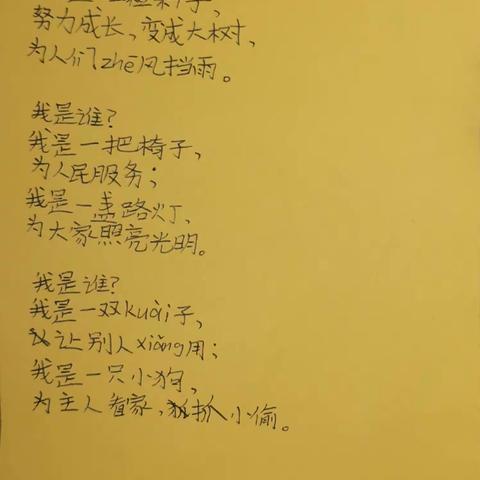 努力成长，变成大树，
为人们zhē风挡雨。
我是谁？
我是一把椅子，
为人民服务；
我是一盏路灯，
为大家照亮光明。
我是谁？
我是一双kuài子，
让别人xiǎng用；
我是一只小狗，
为主人看家，抓小偷。